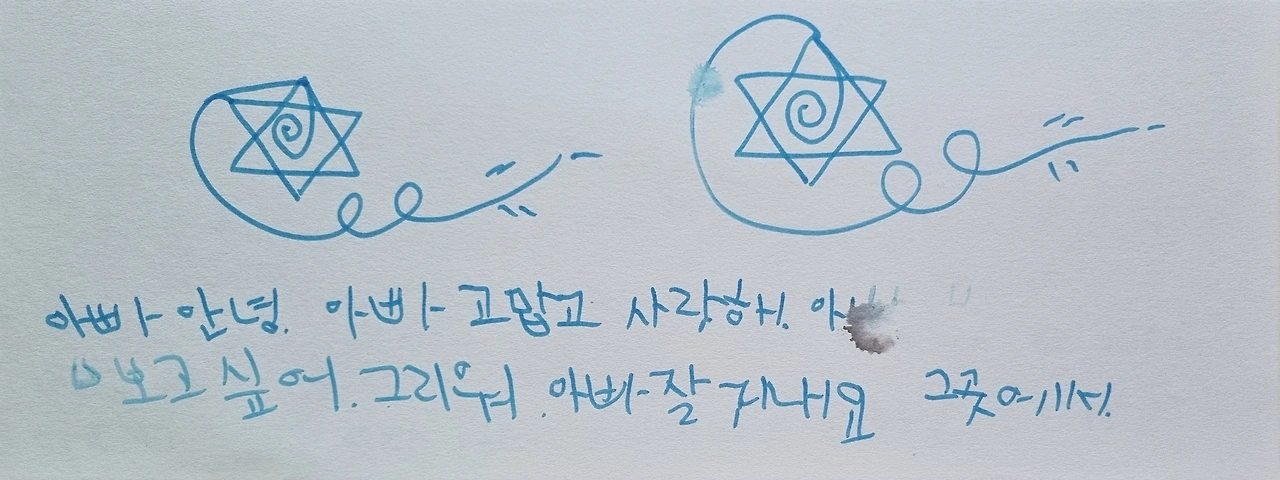 아빠 안녕. 아빠 고맙고 사랑해.
보고 싶어. 그리워. 아빠 잘 지내요 그곳에서.